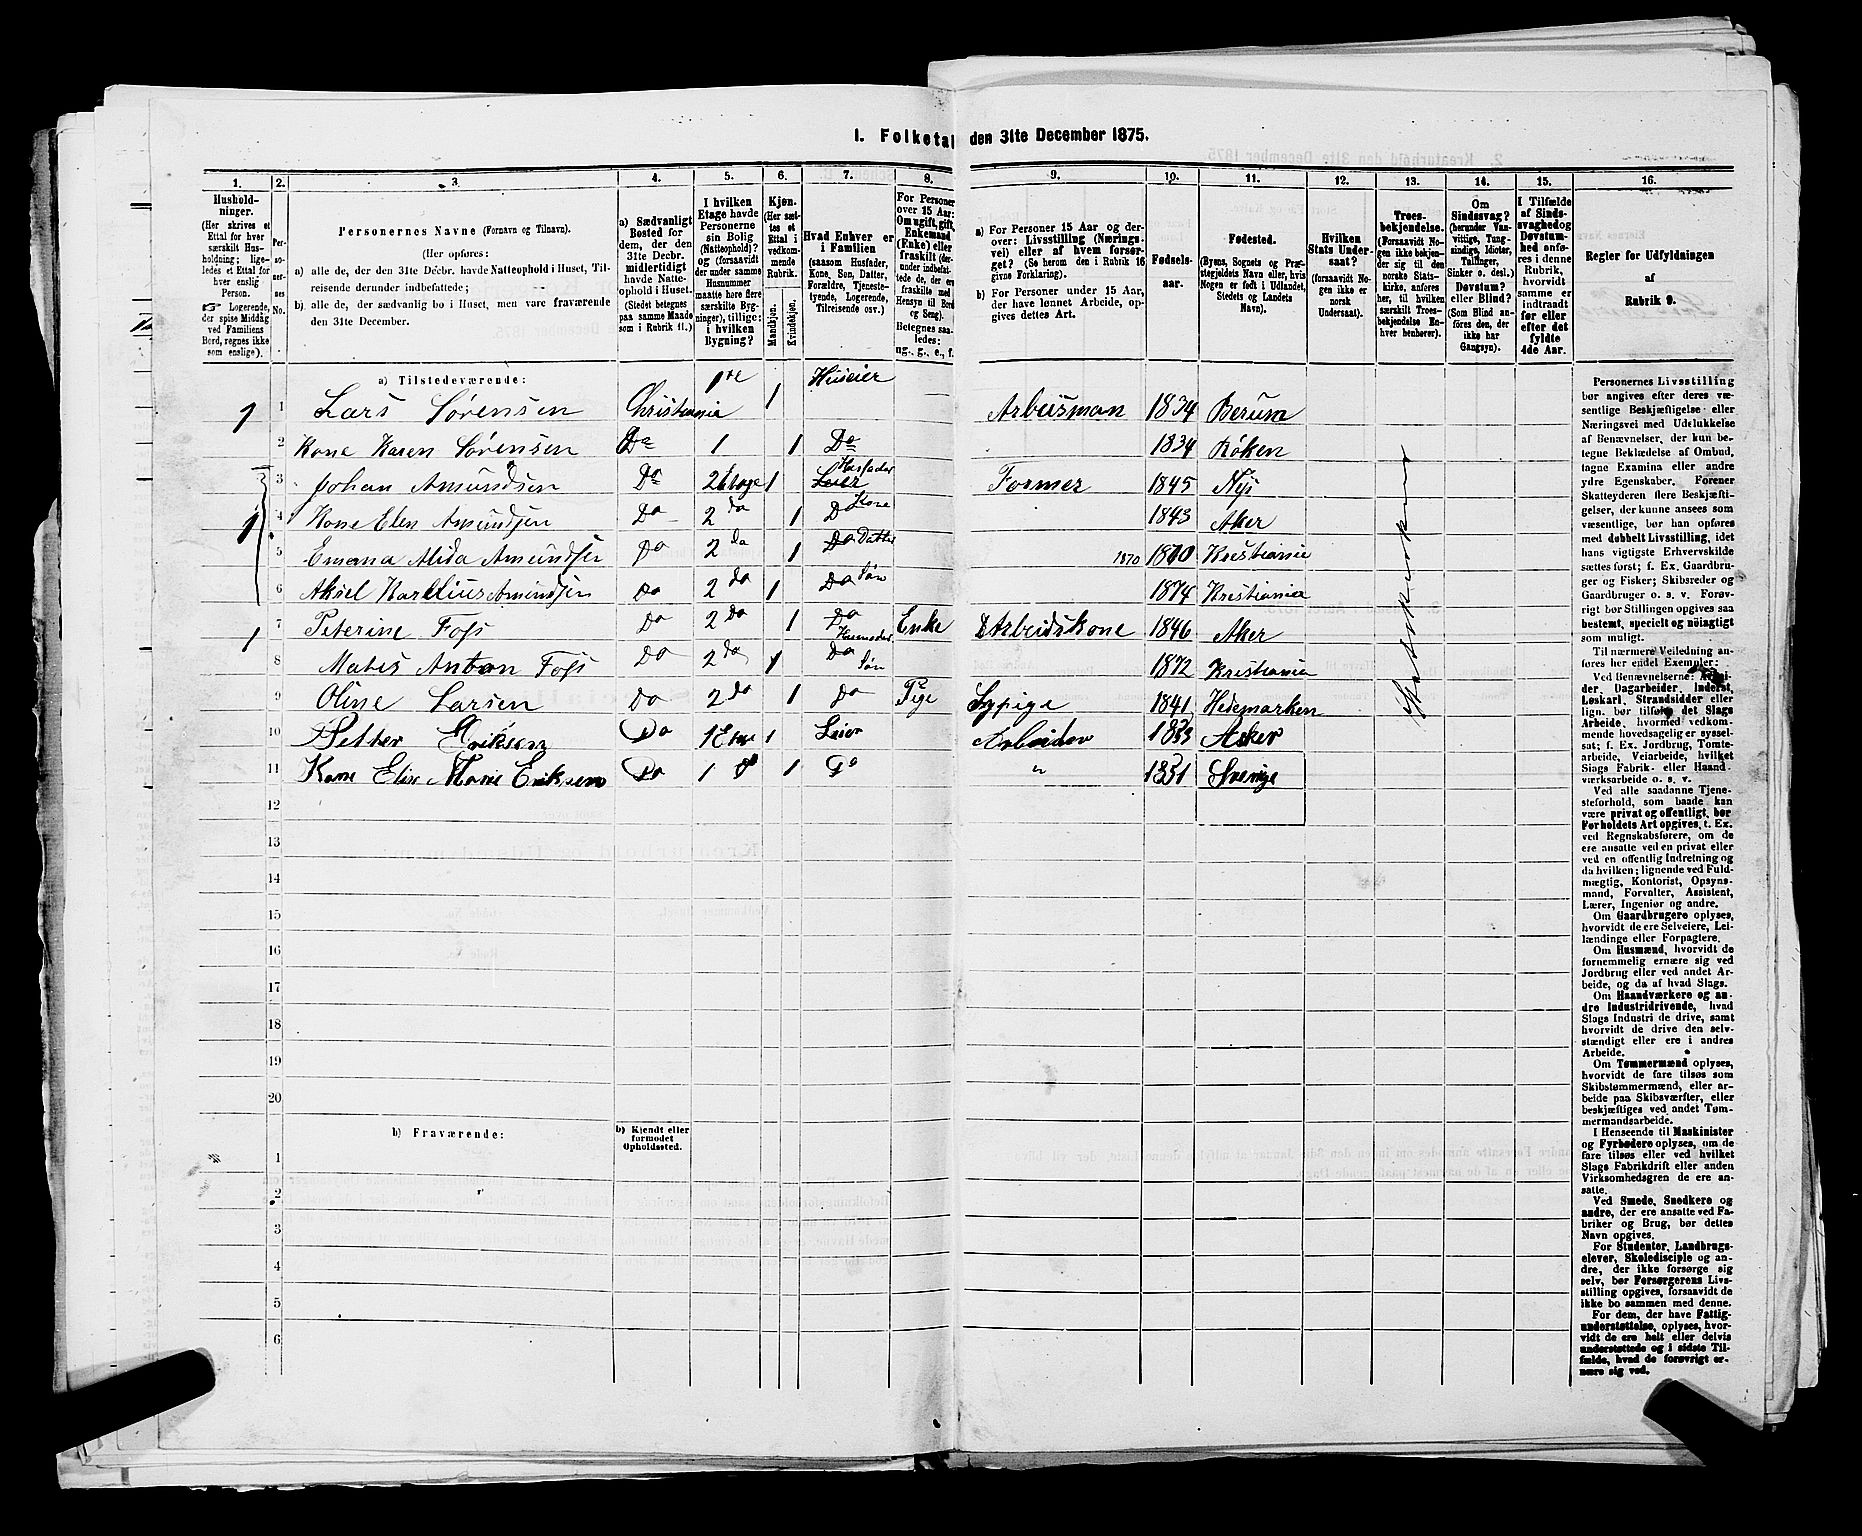 I. Folketal den 31te December 1875.
1. 2. 3. 4. 5. 6. 7. 8. 9. 10. 11. 12. 13. 14. 15. 16.
Hushold-
ninger.
(Her skrives et
Ettal for hver
særskilt Hus-
holdning; lige-
ledes et Ettal for
hver enslig
Person.
Logerende,
der spise Middag
ved Familiens
Bord, regnes ikke
som enslige).
Per-
so-
ner-
nes
No.
Personernes Navne (Fornavn og Tilnavn).
(Her opføres:
a) alle de, der den 31te Decbr. havde Natteophold i Huset, Til-
reisende derunder indbefattede;
b) alle de, der sædvanlig bo i Huset, men vare fraværende
den 31te December.
a) Sædvanligt
Bosted for
dem, der den
31te Decbr.
midlertidigt
havde Natte-
ophold i Huset.
(Stedet betegnes
paa samme Maade
som i Rubrik 11.)
I hvilken
Etage havde
Personerne
sin Bolig
(Natteophold)?
og (forsaavidt
der under samme
Husnummer
maatte høre flere
særskilte Byg-
ninger), tillige:
i hvilken
Bygning?
Kjøn.
(Her sæt-
tes et
Ettal i
vedkom-
mende
Rubrik.
Mandkjøn.
Kvindekjøn.
Hvad Enhver er
i Familien
(saasom Husfader,
Kone, Søn, Datter,
Forældre, Tjeneste-
tyende, Logerende,
Tilreisende osv.)
For Personer
over 15 Aar:
Om ugift, gift,
Enkemand
(Enke) eller
fraskilt
(derunder indbefat-
tede de, der ere
fraskilte med
Hensyn til Bord
og Seng).
Betegnes saa-
ledes:
ug., g., e., f.
a) For Personer 15 Aar og der-
over: Livsstilling (Nærings-
vei) eller af hvem forsør-
get? (Se herom den i Rubrik 16
givne Forklaring).
b) For Personer under 15 Aar,
der have lønnet Arbeide, op-
gives dettes Art.
Fødsels-
aar.
Fødested.
(Byens, Sognets og Præ-
stegjeldets Navn eller, hvis
Nogen er født i Udlandet,
Stedets og Landets
Navn).
Hvilken
Stats Under-
saat?
(forsaavidt No-
gen ikke er
norsk
Undersaat).
Troes-
bekjendelse.
(Forsaavidt No-
gen ikke bekjen-
der sig til den
norske Stats-
kirke, anføres
her, til hvilken
særskilt Troes-
bekjendelse En-
hver henhører).
Om
Sindssvag?
(herunder Van-
vittige, Tung-
sindige, Idioter,
Tullinger,
Sinker o. desl.)
Døvstum?
eller Blind?
(Som Blind an-
føres den, der
ikke har
Gangsyn).
I Tilfælde
af Sinds-
svaghed og
Døvstum-
hed anfø-
res i denne
Rubrik,
hvorvidt
samme er
indtraadt
før eller
efter det
fyldte
4de Aar.
Regler for Udfyldningen
af
Rubrik 9.
a) Tilstedeværende:
1 1 Lars Sørensen Christiania 1te 1 Huseier Arbeisman 1834 Berum
2 Kone Karen Sørensen Do 1 1 Do 1834 Røken
3 Johan Amundsen Do 2 Etage 1 Leier Husfader Former 1845 Nys
1 4 Kone Elen Amundsen Do 2 do 1 D Kone 1843 Aker
5 Emma Alida Amundsen Do 2 do 1 Do Datter 1870 1870 Kristiania
6 Aksel Karelius Amundsen Do 2 do 1 Do Søn 1874 Kristiania
1 7 Peterine Foss Do 2 do 1 Do Husmoder Enke Arbeidskone 1846 Aker
8 Mates Anton Foss Do 2 do 1 Do Søn 1872 Kristiania
9 Oline Larsen Do 2 do 1 Do Pige Sypige 1841 Hedemarken
10 Petter Eriksen Do 1 Etage 1 Leier Arbeider 1833 Asker
11 Kone Elise Marie Eriksen Do 1 do 1 Do " 1831 Sverige
Statskirken
12
13
14
15
16
17
18
19
20
b) Fraværende:
b) Kjendt eller
formodet
Opholdssted.
1
2
3
4
5
6
Personernes Livsstilling
bør angives efter deres væ-
sentlige Beskjæftigelse eller
Næringsvei med Udelukkelse
af Benævnelser, der kun be-
tegne Beklædelse af Ombud,
tagne Examina eller andre
ydre Egenskaber. Forener
Skatteyderen flere Beskjæfti-
gelser, der kunne ansees som
væsentlige, bør han opføres
med dobbelt Livsstilling, idet
hans vigtigste Erhvervskilde
sættes først; f. Ex. Gaardbru-
ger og Fisker; Skibsreder og
Gaardbruger o. s. v. Forøv-
rigt bør Stillingen opgives saa
bestemt, specielt og nøiagtigt
som muligt.
Til nærmere Veiledning an-
føres her endel Exempler:
Ved Benævnelserne: Arbei-
der, Dagarbeider, Inderst,
Løskarl, Strandsidder eller
lign. bør tilføies det Slags
Arbeide, hvormed vedkom-
mende hovedsagelig er syssel-
sat; f. Ex. Jordbrug, Tomte-
arbeide, Veiarbeide, hvilket
Slags Fabrik- eller Haand-
værksarbeide o. s. v.
Ved alle saadanne Tjene-
steforhold, som baade kan
være privat og offentligt, bør
Forholdets Art opgives, t. Ex.
ved Regnskabsførere, om de
ere ansatte ved en privat eller
ved en offentlig Indretning og
da hvilken; lignende ved Fuld-
mægtig, Kontorist, Opsyns-
mand, Forvalter, Assistent,
Lærer, Ingeniør og andre.
Om Gaardbrugere oplyses,
hvorvidt de ere Selveiere, Lei-
lændinge eller Forpagtere.
Om Husmænd, hvorvidt de
fornemmelig ernære sig ved
Jordbrug eller ved andet Ar-
beide, og da af hvad Slags.
Om Haandværkere og an-
dre Industridrivende, hvad
Slags Industri de drive, samt
hvorvidt de drive den selv-
stændigt eller ere i andres
Arbeide.
Om Tømmermænd oplyses,
hvorvidt de fare tilsøs som
Skibstømmermænd, eller ar-
beide paa Skibsværfter, eller
beskjæftiges ved andet Tøm-
mermandsarbeide.
I Henseende til Maskinister
og Fyrbødere oplyses, om de
fare tilsøs eller ved hvilket
Slags Fabrikdrift eller anden
Virksomhedsgren de ere an-
satte.
Ved Smede, Snedkere og
andre, der ere ansatte ved Fa-
briker og Brug, bør dettes
Navn opgives.
For Studenter, Landbrugs-
elever, Skoledisciple og an-
dre, der ikke forsørge sig
selv, bør Forsørgerens Livs-
stilling opgives, forsaavidt de
ikke bo sammen med denne.
For dem, der have Fattig-
understøttelse, oplyses, hvor-
vidt de ere helt eller delvis
understøttede og i sidste Til-
fælde, hvad de forøvrigt er-
nære sig ved.